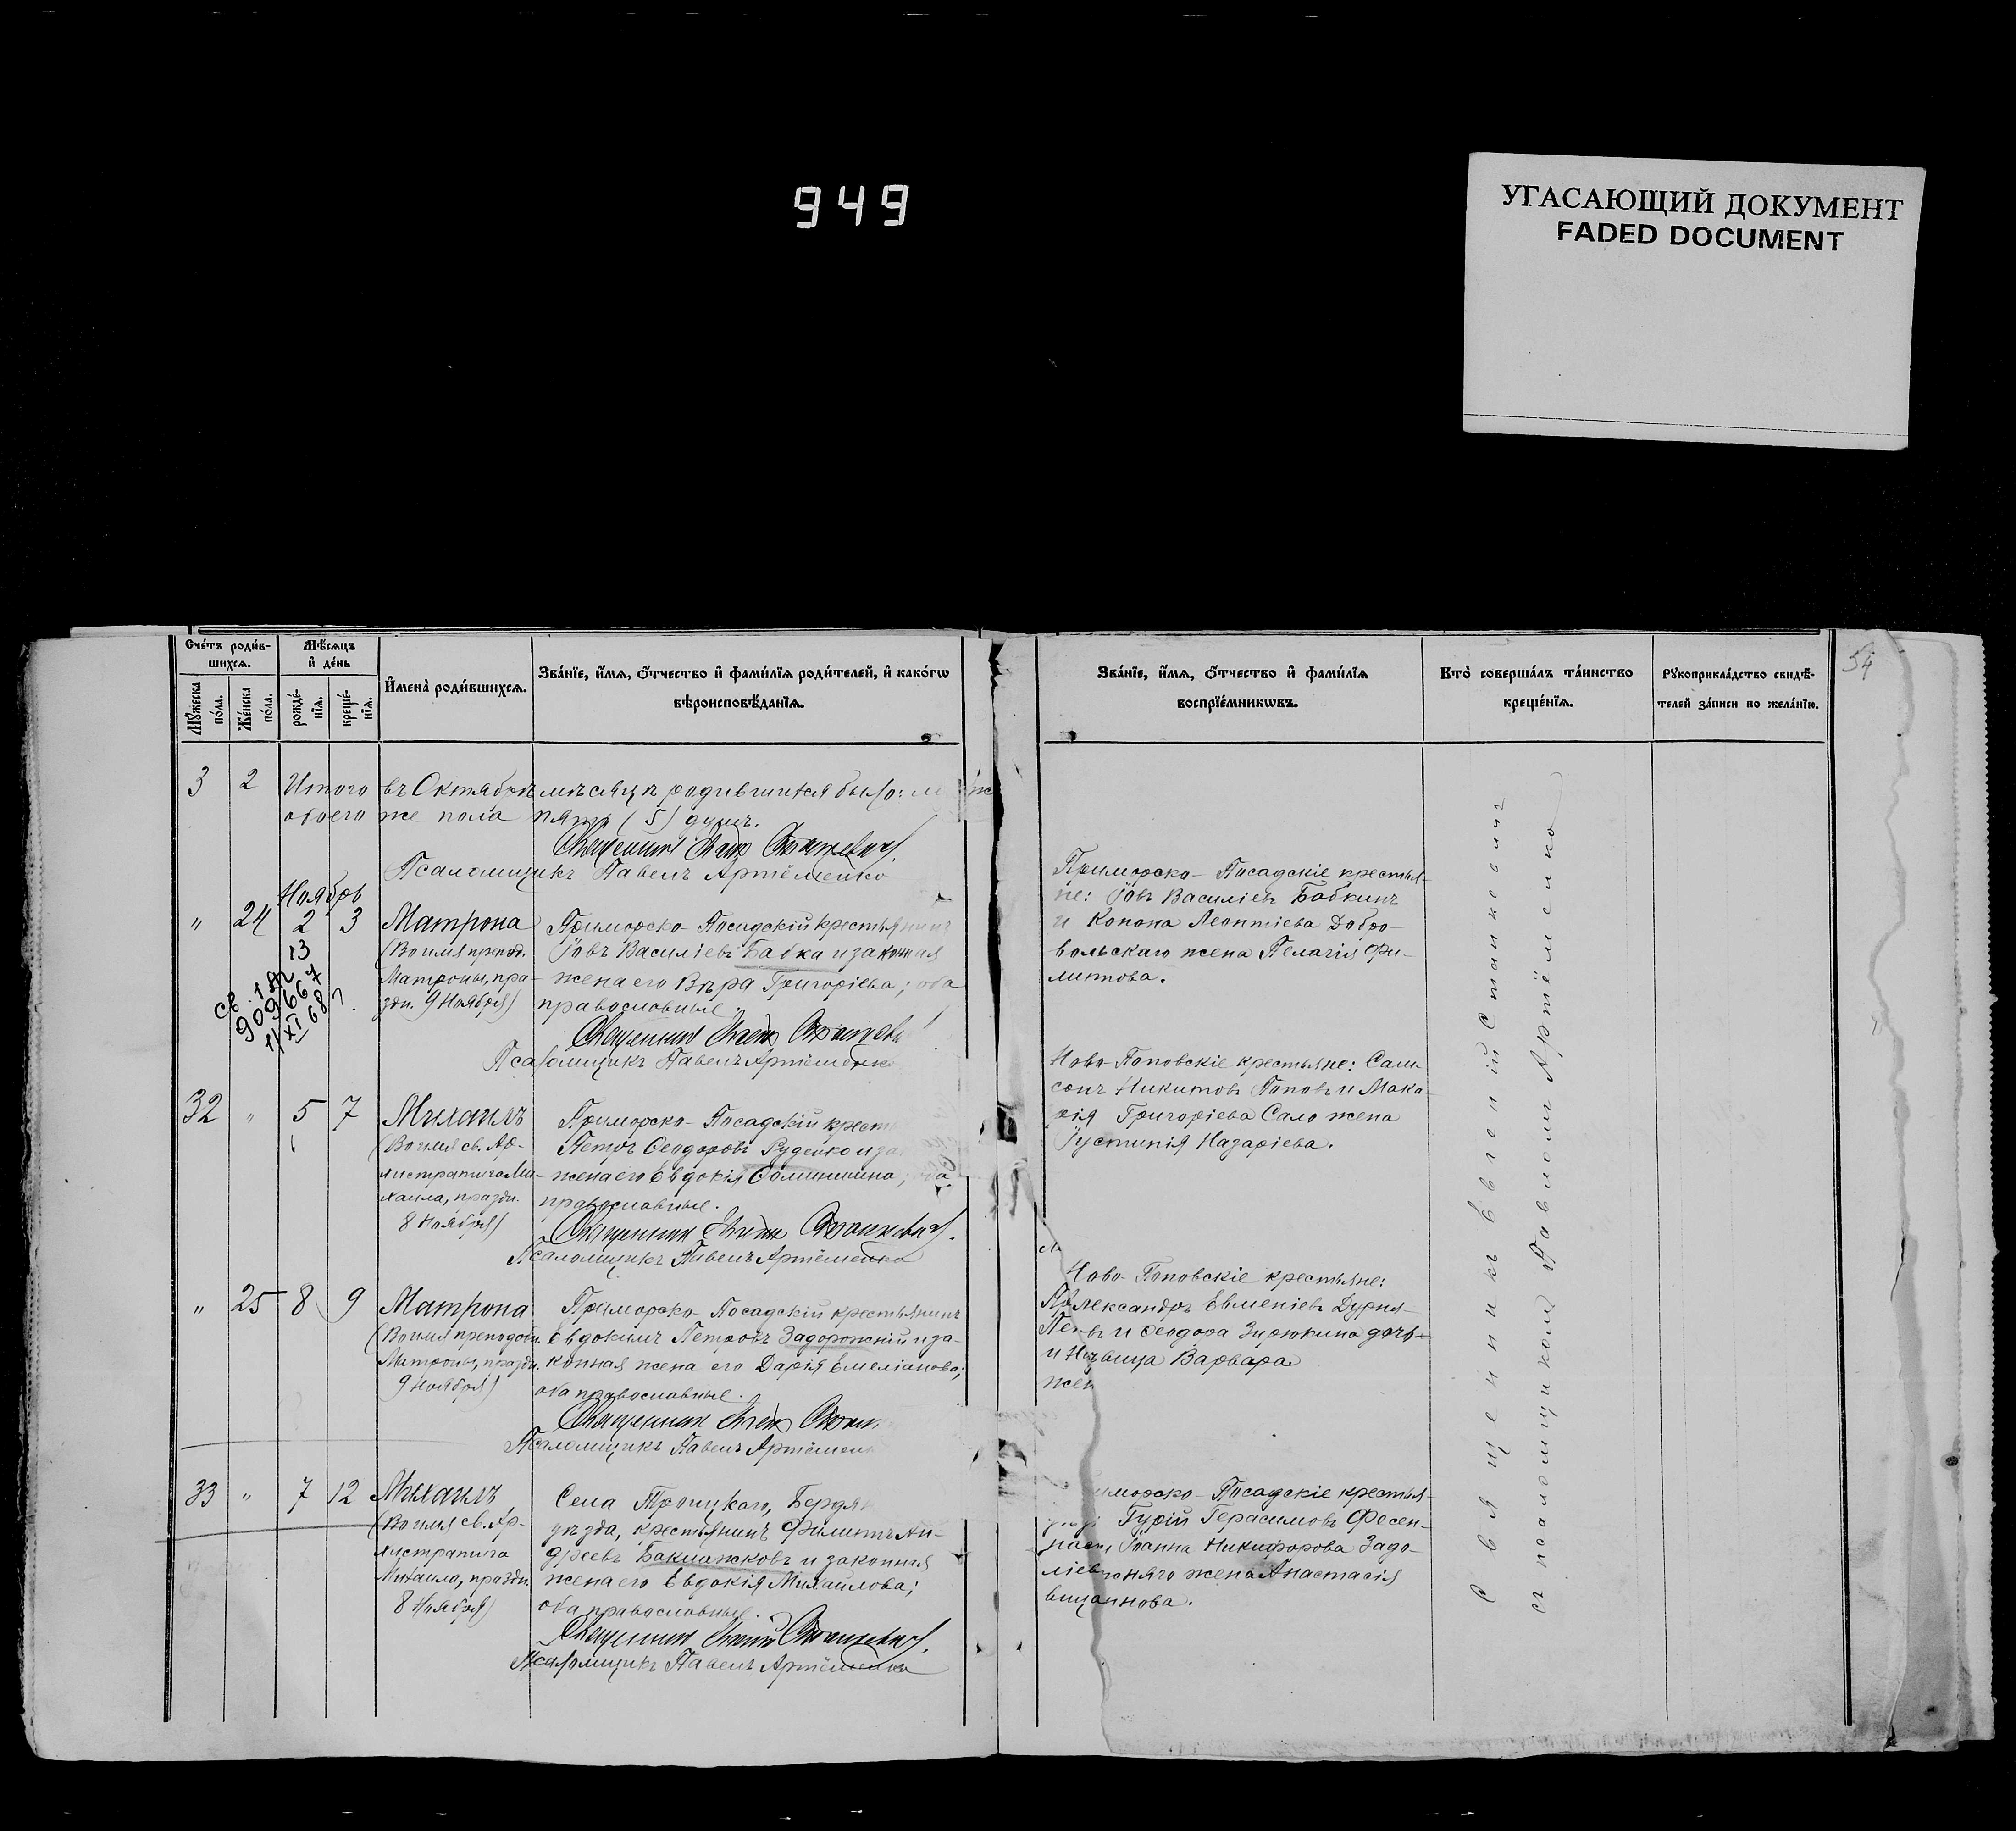 949
УГАСАЮЩИЙ ДОКУМЕНТ
FADED DOCUMENT
54
Счетъ родив-
шихся.
Мужеска
пола.
Женска
пола.
Мѣсяцъ
и день
рожде-
нія.
креще-
нія.
Имена родившихся.
Званіе, имя, отчество и фамилія родителей, и какого
вѣроисповѣданія.
Званіе, имя, отчество и фамилія
воспріемниковъ.
Кто совершалъ таинство
крещенія.
Рукоприкладство свидѣ-
телей записи по желанію.
3 2 Итого въ Октябрѣ мѣсяцѣ родившихся было:
обоего же пола пять (5) душъ.
Священникъ Станкевичъ
Псаломщикъ Павелъ Артёменко
Ноябрь
" 24 2 3
13
Матрона
(Во имя препод.
Матроны, пра-
здн. 9 Ноября)
Приморско-Посадскій крестьянинъ
Іовъ Василіевъ Бабка и законная
жена его Вѣра Григоріева; оба
православные.
Священникъ
Псаломщикъ Павелъ Артёменко
Приморско-Посадскіе крестья-
не: Іовъ Василіевъ Бабкинъ
и Конона Леонтіева Добро-
вольскаго жена Пелагія Фи-
липпова.
св. 1
XI 68
32 " 5 7
Михаилъ
(Во имя св. Ар-
хистратига Ми-
хаила, праздн.
8 Ноября)
Приморско-Посадскій крест
Петръ Ѳеодоровъ Руденко и за
жена его Евдокія;
православные.
Священникъ Станкевичъ.
Псаломщикъ Павелъ Артёменко
Ново-Поповскіе крестьяне: Сам-
сонъ Никитовъ Поповъ и Мака
рія Григоріева Сало жена
Іустинія Назаріева.
" 25 8 9
Матрона
(Во имя преподобн.
Матроны, праздн.
9 Ноября)
Приморско-Посадскій крестьянинъ
Евдокимъ Петровъ Задорожскій и за-
конная жена его Дарія Емеліанова;
оба православные.
Священникъ
Псаломщикъ Павелъ Артёмен
Ново-Поповскіе крестьяне:
Александръ Евменіевъ
и Ѳеодора дочь
Варвара
жен
33 " 7 12
Михаилъ
(Во имя св. Ар-
хистратига
Михаила, праздн.
8 Ноября)
Села Троицкаго, Бердян
уѣзда, крестьянинъ Филиппъ Ан-
дреевъ Баклажковъ и законная
жена его Евдокія Михайлова;
оба православные.
Священникъ Станкевичъ.
Псаломщикъ Павелъ Артёменко
иморско-Посадскіе крестья-
Гурій Герасимовъ Фесен-
Іоанна Никифорова Задо-
жена Анастасія
Священникъ Евгеній Станкевичъ
съ псаломщикомъ Павломъ Артёменко